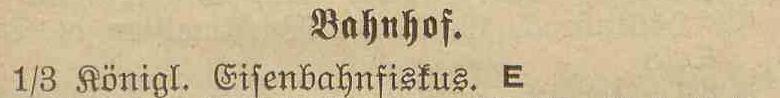 Bahnhof.
1/3 Königl. Eisenbahnfiskus. E